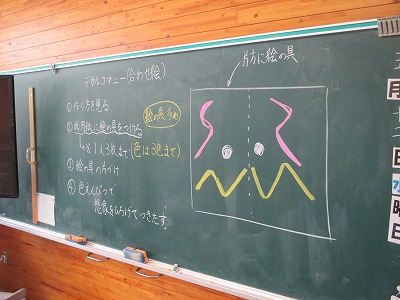 デカルコマニー(合わせ絵)
片方に絵の具
①作り方を見る
絵の具多め
②画用紙に絵の具をつける
1人3枚まで(色は3色まで)
③絵の具の片づけ
④色えんぴつで
想像を広げてつきたす。
月
曜
日